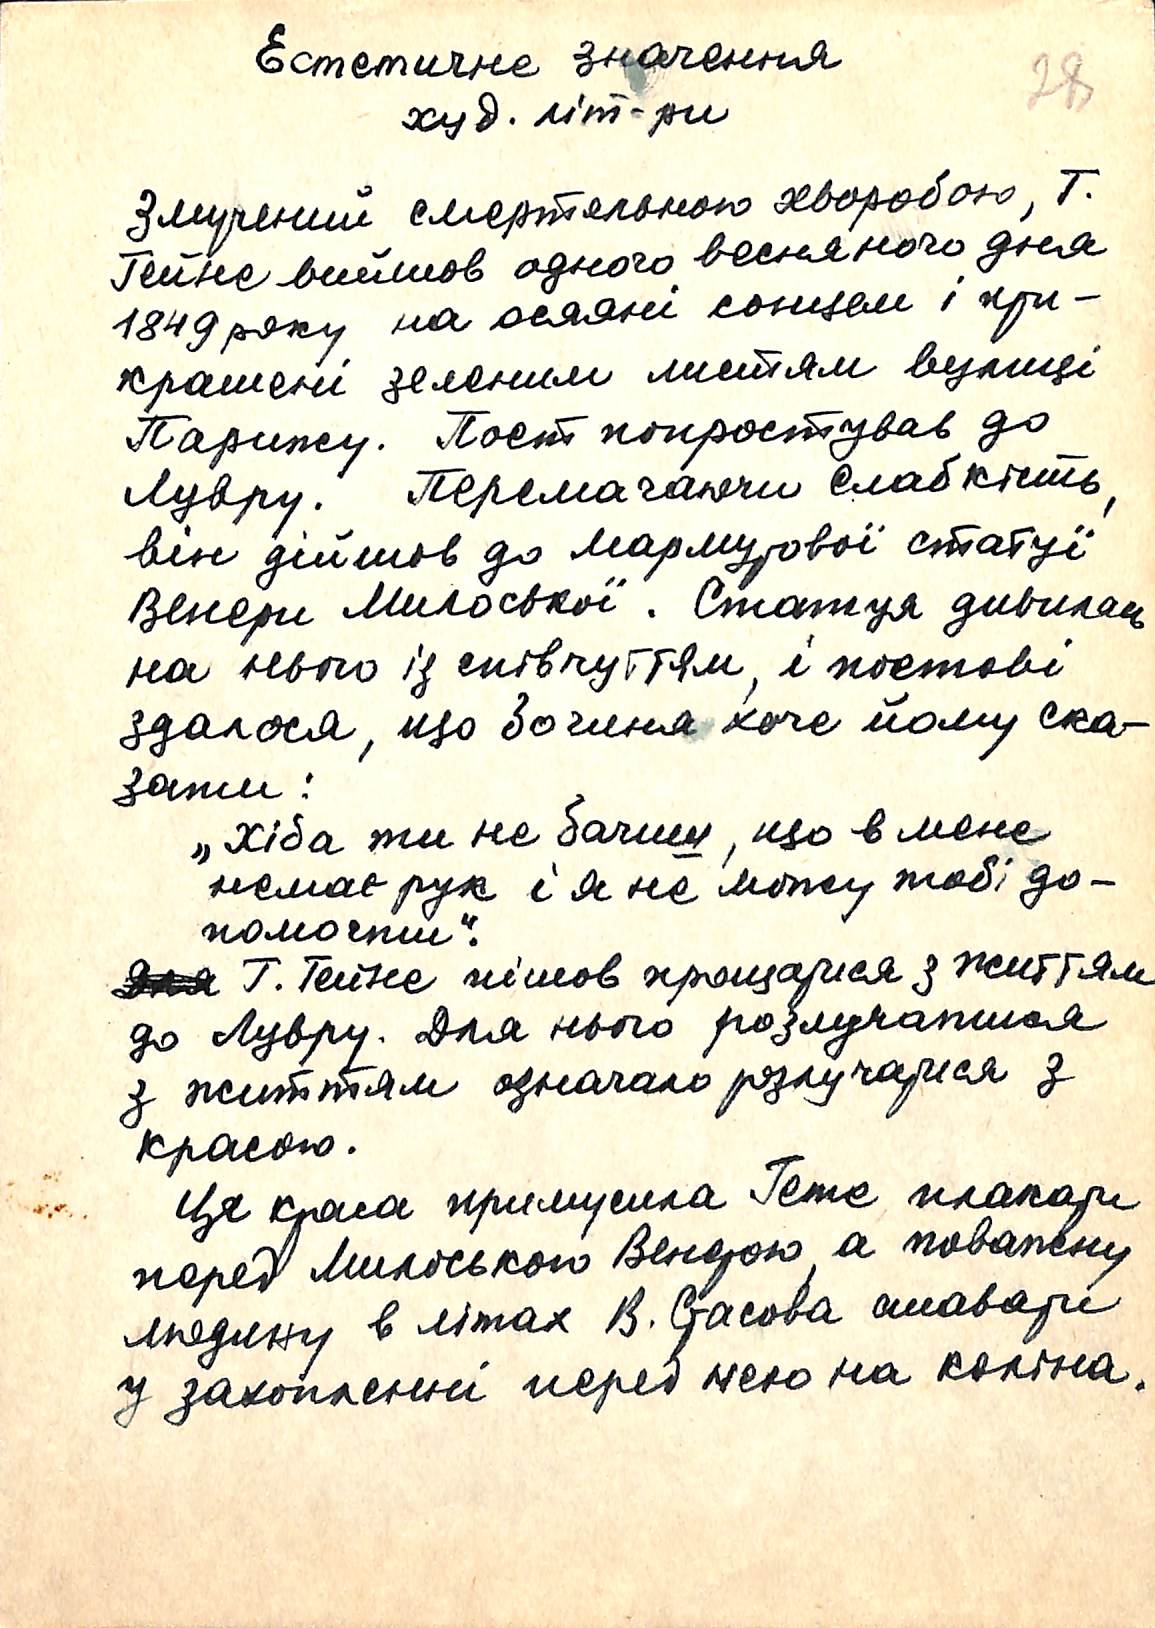 Естетичне значення
28
худ. літ-ри
Змучений смертельною хворобою, Г.
Гейне вийшов одного весняного дня
1849 року на осяяні сонцем і при-
крашені зеленим листям вулиці
Парижу. Поет попростував до
Лувру. Перемагаючи слабкість,
він дійшов до мармурової статуї
Венери Милоської. Статуя дивилась
на нього із співчуттям, і поетові
здалося, що богиня хоче йому ска-
зати:
„Хіба ти не бачиш, що в мене
немає рук і я не можу тобі до-
помогти".
Г. Гейне пішов прощатися з життям
до Лувру. Для нього розлучатися
з життям означало розлучатися з
красою.
Ця краса примусила Гете плакати
перед Милоською Венерою, а поважну
людину в літах В. Стасова ставати
у захопленні перед нею на коліна.